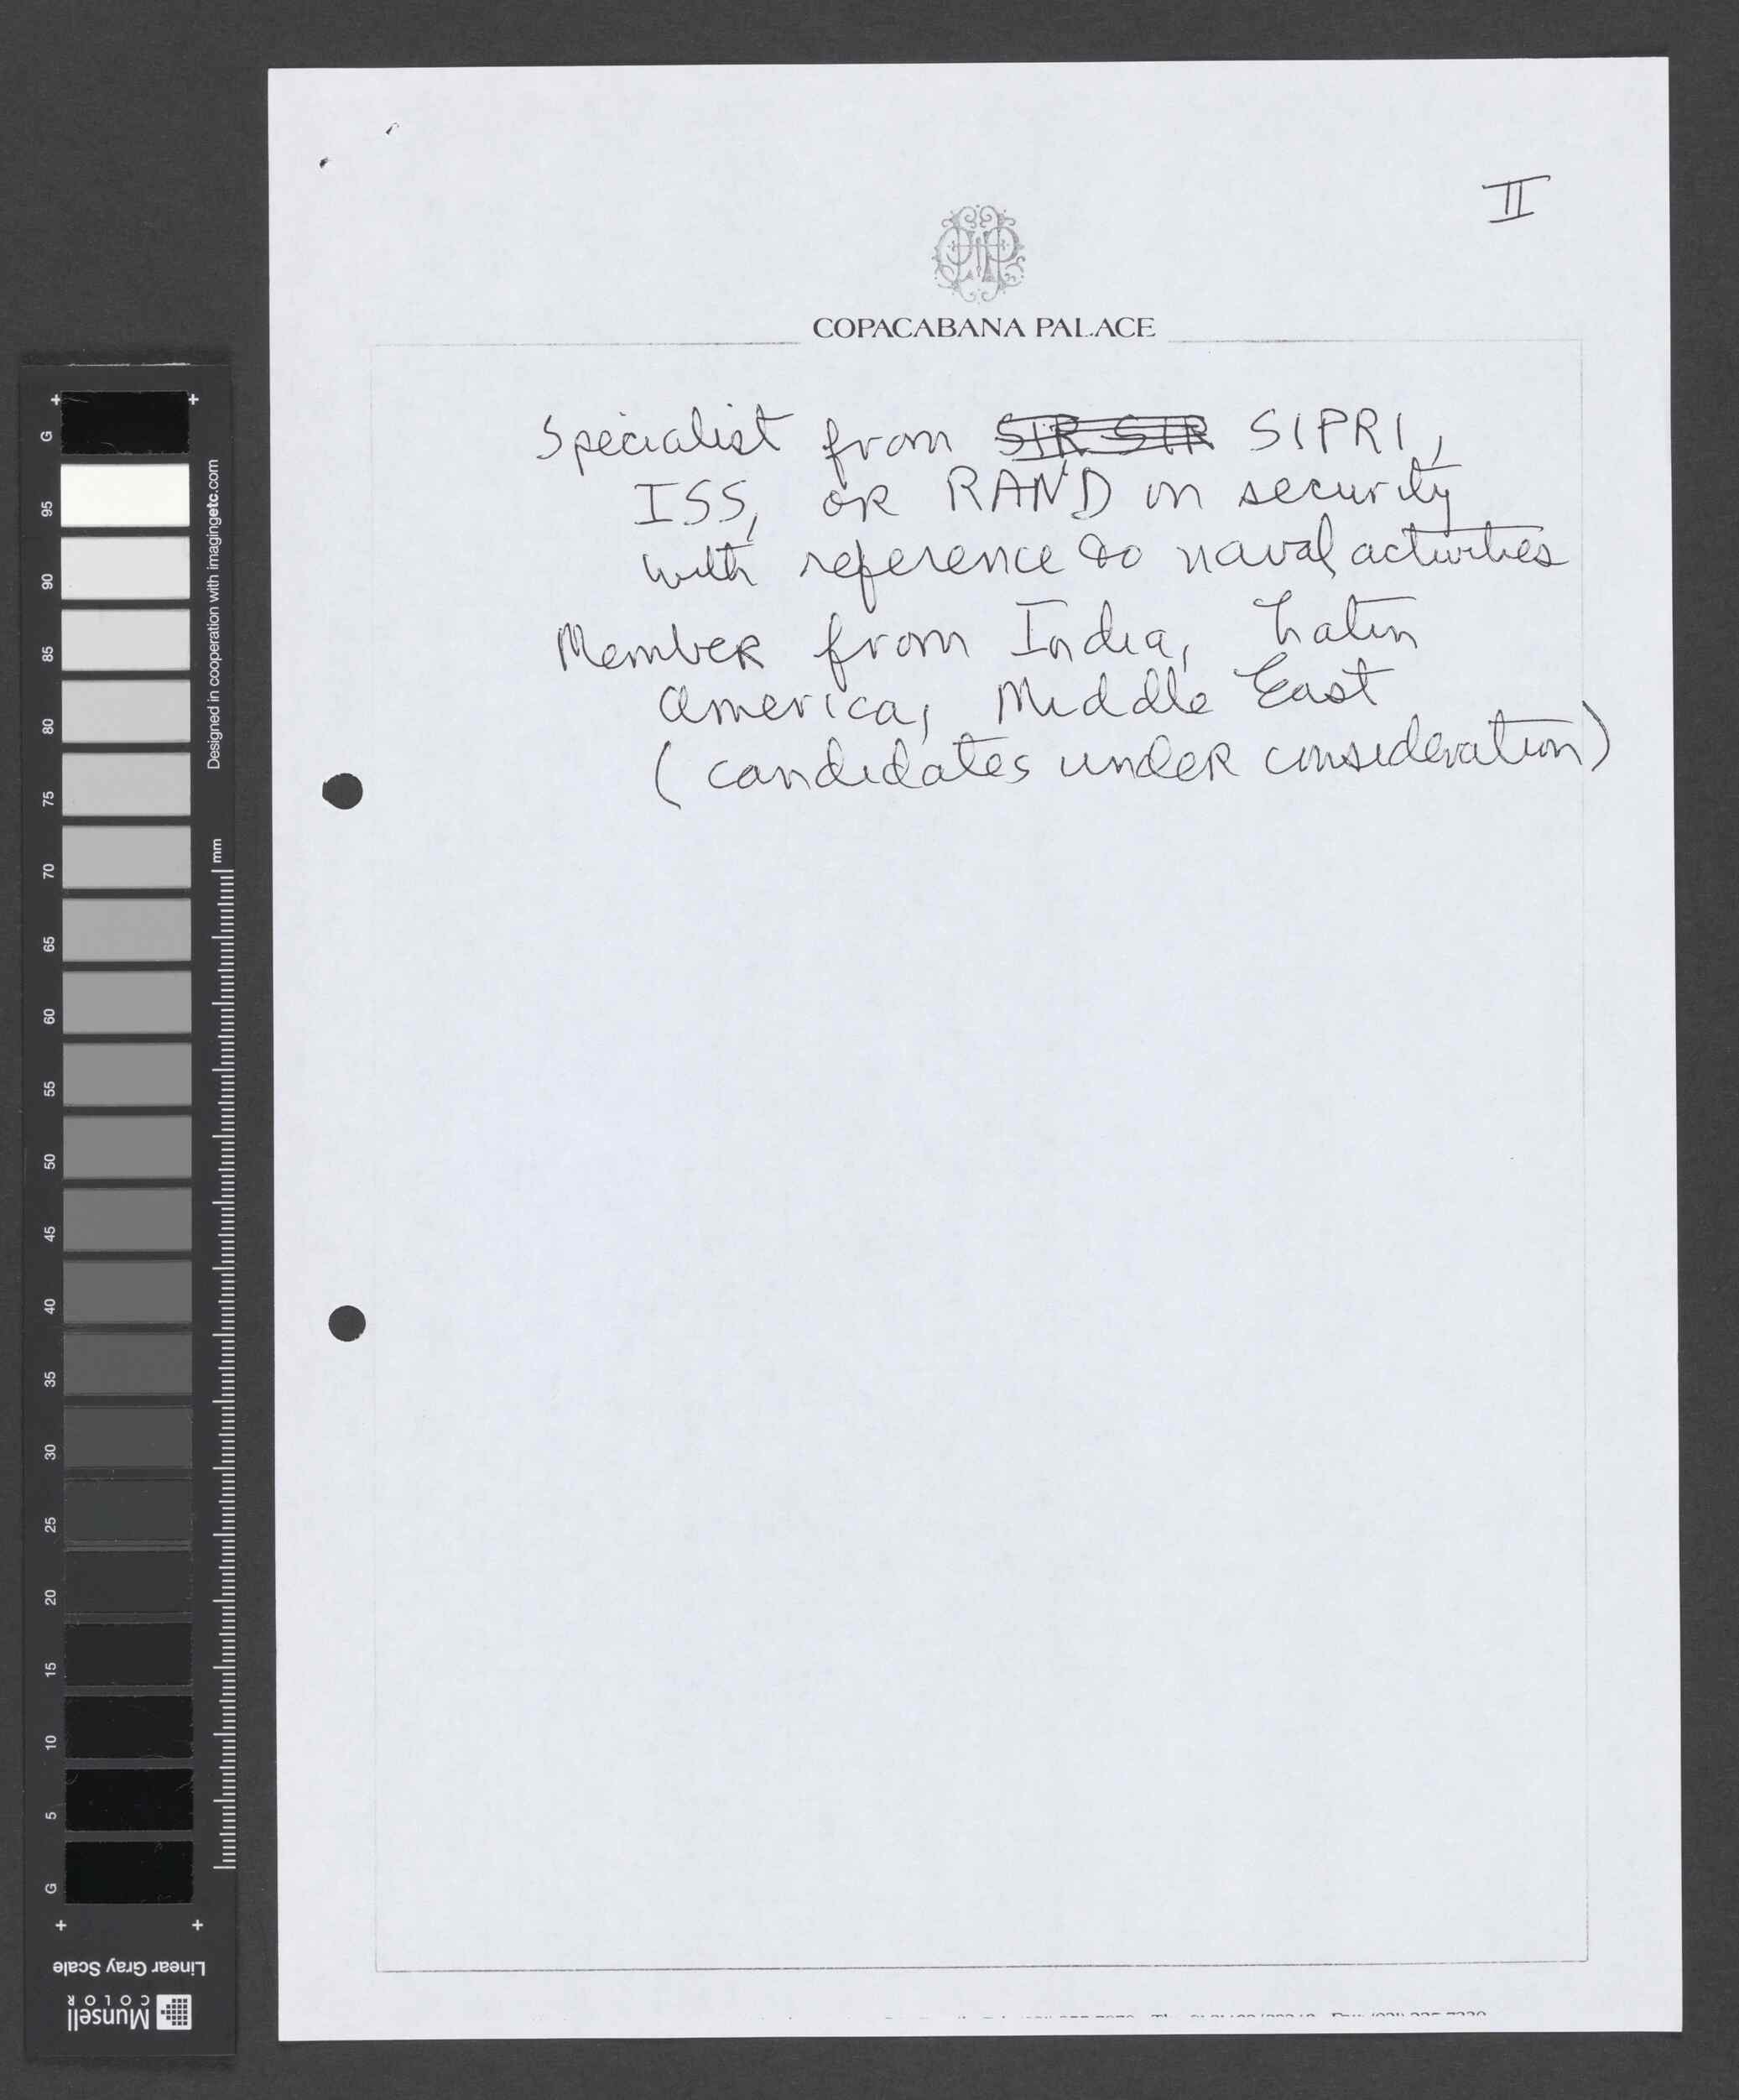 II
COPACABANA PALACE
Specialist from SIR SIR SIPRI,
ISS, OR RAND on security
with reference to naval activities
Member from India, Latin
America, Middle East
(candidates under consideration)
G
95
90
85
80
75
70
65
60
55
50
45
40
35
30
25
20
15
10
5
G
Designed in cooperation with imagingetc.com
mm
Linear Gray Scale
Munsell
COLOR